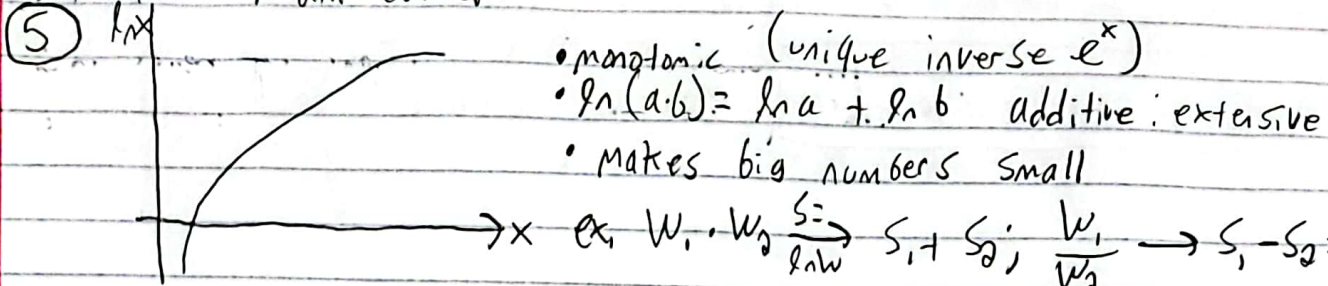 ⑤ lnx
• monotomic (unique inverse e^x)
• ln(a·b) = ln a + ln b additive : extensive
• makes big numbers small
x ex, W₁ · W₂ →(S= lnW) S₁ + S₂; W₁/W₂ → S₁ - S₂